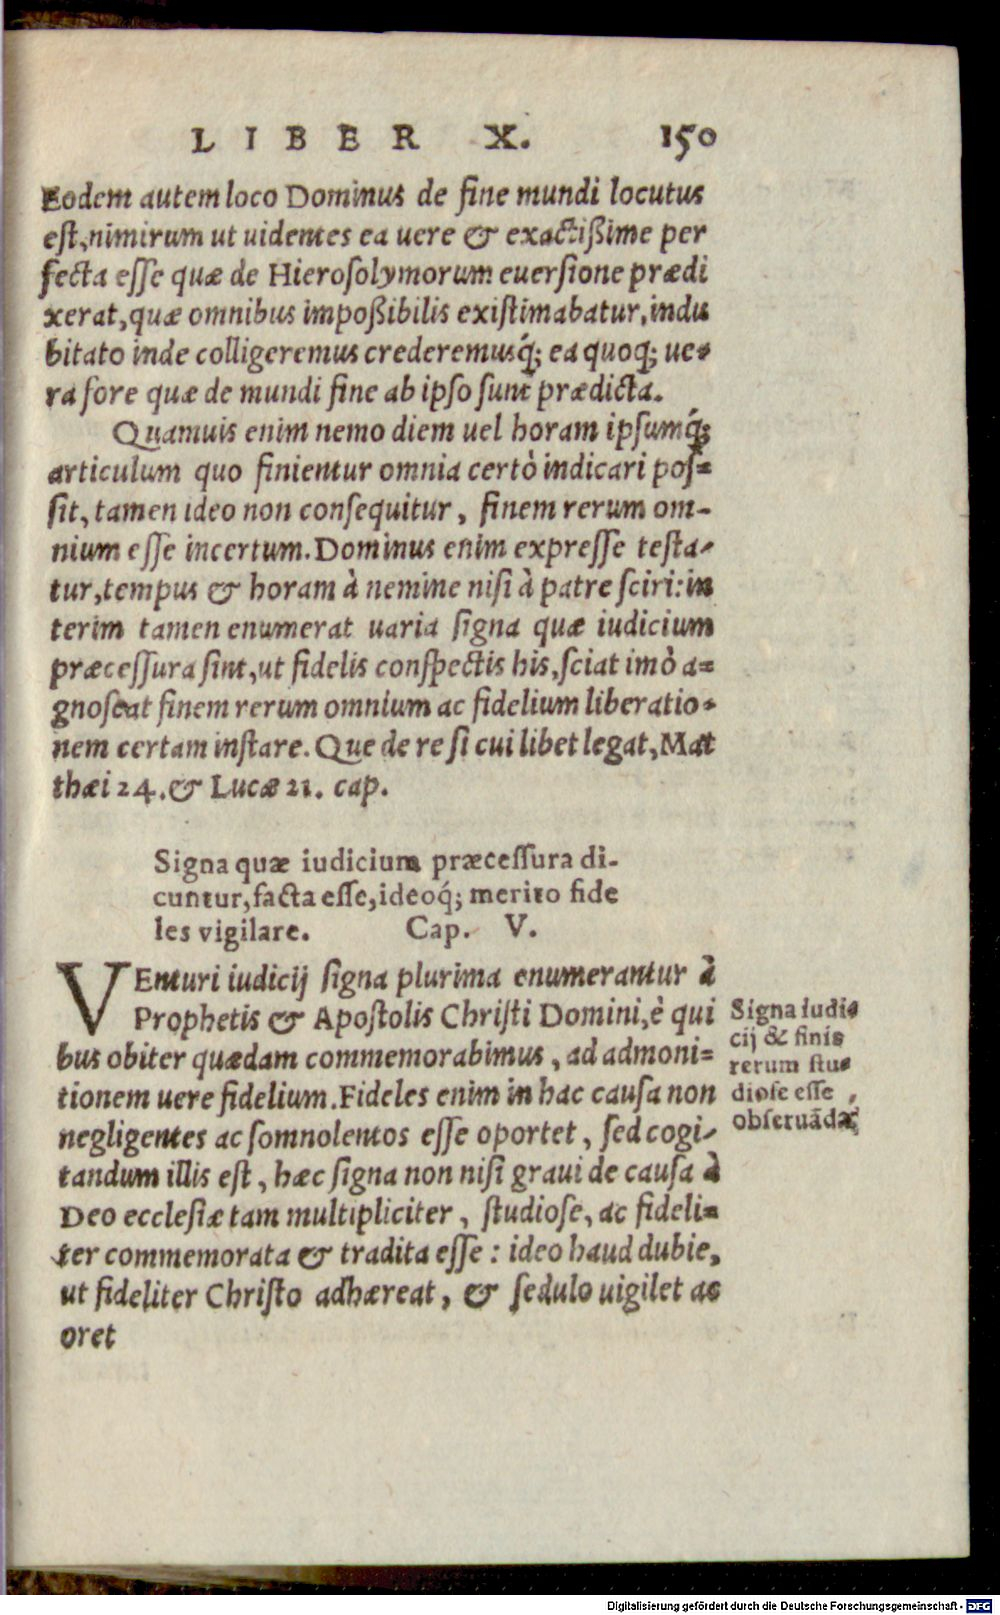 LIBER X. 150
Eodem autem loco Dominus de fine mundi locutus
eſt, nimirum ut uidentes ea uere & exactißime per
fecta eſſe quæ de Hieroſolymorum euerſione prædi
xerat, quæ omnibus impoßibilis exiſtimabatur, indu
bitato inde colligeremus crederemusq́; ea quoq; ue-
ra fore quæ de mundi fine ab ipſo ſunt prædicta.
Quamuis enim nemo diem uel horam ipſumq́;
articulum quo finientur omnia certò indicari poſ=
ſit, tamen ideo non conſequitur, finem rerum om-
nium eſſe incertum. Dominus enim expreſſe teſta-
tur, tempus & horam à nemine niſi à patre ſciri: in
terim tamen enumerat uaria ſigna quæ iudicium
præceſſura ſint, ut fidelis conſpectis his, ſciat imò a=
gnoſcat finem rerum omnium ac fidelium liberatio-
nem certam inſtare. Que de re ſi cui libet legat, Mat
thæi 24. & Lucæ 21. cap.
Signa quæ iudicium præceſſura di-
cuntur, facta eſſe, ideoq́; merito fide
les vigilare. Cap. V.
VEnturi iudicij ſigna plurima enumerantur à
Prophetis & Apoſtolis Chriſti Domini, è qui
bus obiter quædam commemorabimus, ad admoni=
tionem uere fidelium. Fideles enim in hac cauſa non
negligentes ac ſomnolentos eſſe oportet, ſed cogi-
tandum illis eſt, hæc ſigna non niſi graui de cauſa à
Deo eccleſiæ tam multipliciter, ſtudioſe, ac fideli=
ter commemorata & tradita eſſe: ideo haud dubie,
ut fideliter Chriſto adhæreat, & ſedulo uigilet ac
oret
Signa iudi-
cij & finis
rerum ſtu-
dioſe eſſe
obſeruãda
Digitalisierung gefördert durch die Deutsche Forschungsgemeinschaft - DFG